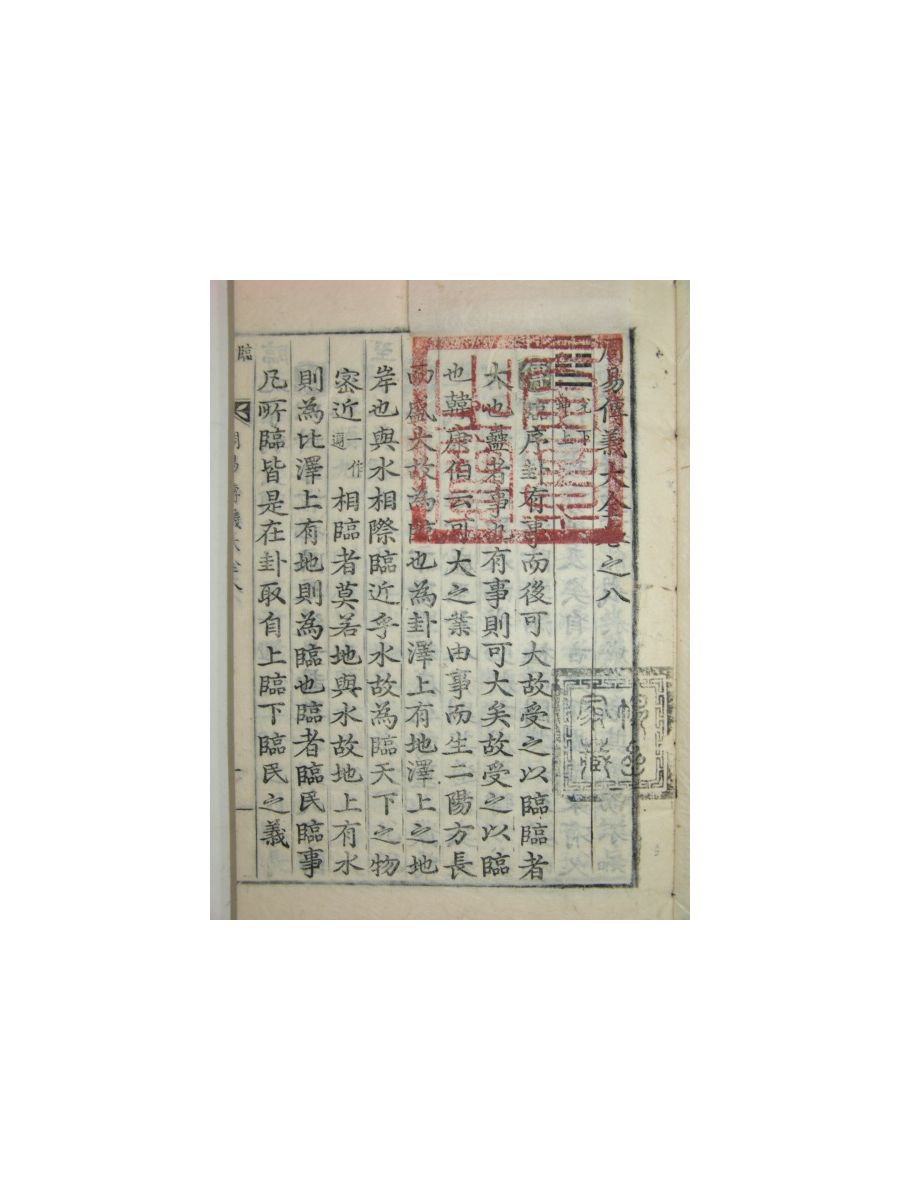 周易傳義大全卷之八
兌下
坤上
傳臨序卦有事而後可大故受之以臨臨者
大也蠱者事也有事則可大矣故受之以臨
也韓康伯云可大之業由事而生二陽方長
而盛大故為臨也為卦澤上有地澤上之地
岸也與水相際臨近乎水故為臨天下之物
密近一作邇相臨者莫若地與水故地上有水
則為比澤上有地則為臨也臨者臨民臨事
凡所臨皆是在卦取自上臨下臨民之義
臨
周易傳義大全八